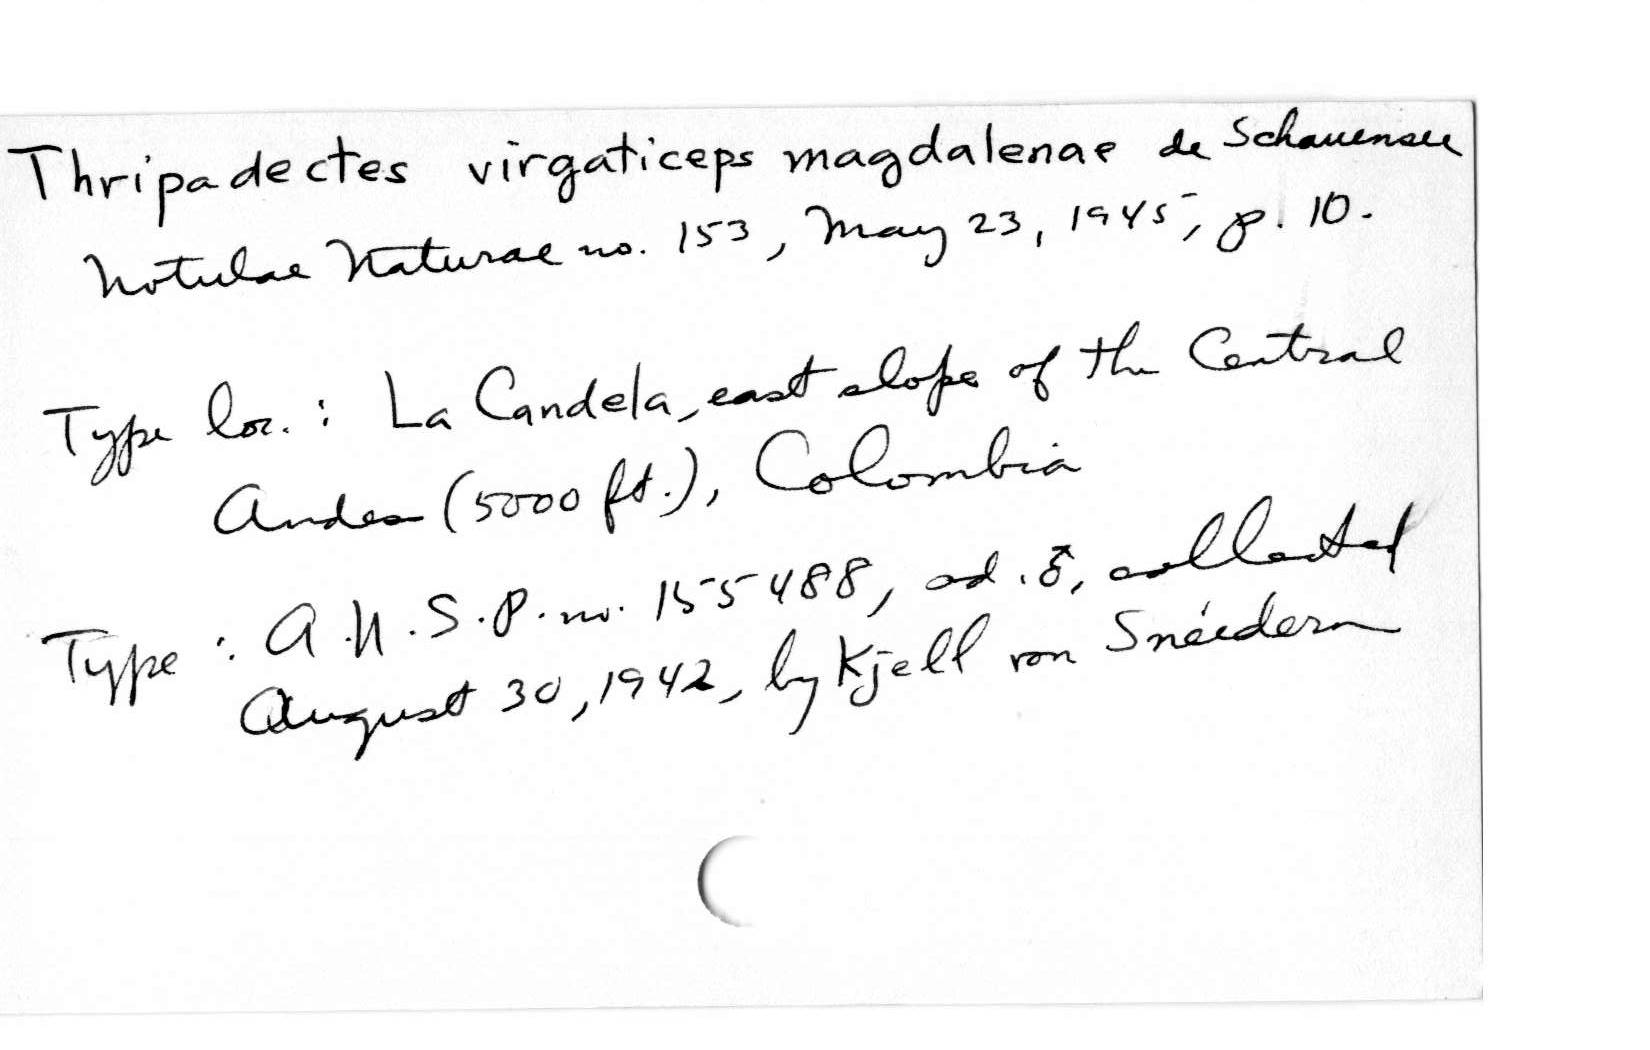 Thripadectes virgaticeps magdalenae de Schauensee
Notulae Naturae no. 153, May 23, 1945, p. 10.
Type loc.: La Candela, east slope of the Central
Andes (5000 ft.), Colombia
Type: A.N.S.P. no. 155488, ad. ♂, collected
August 30, 1942, by Kjell von Snéidern